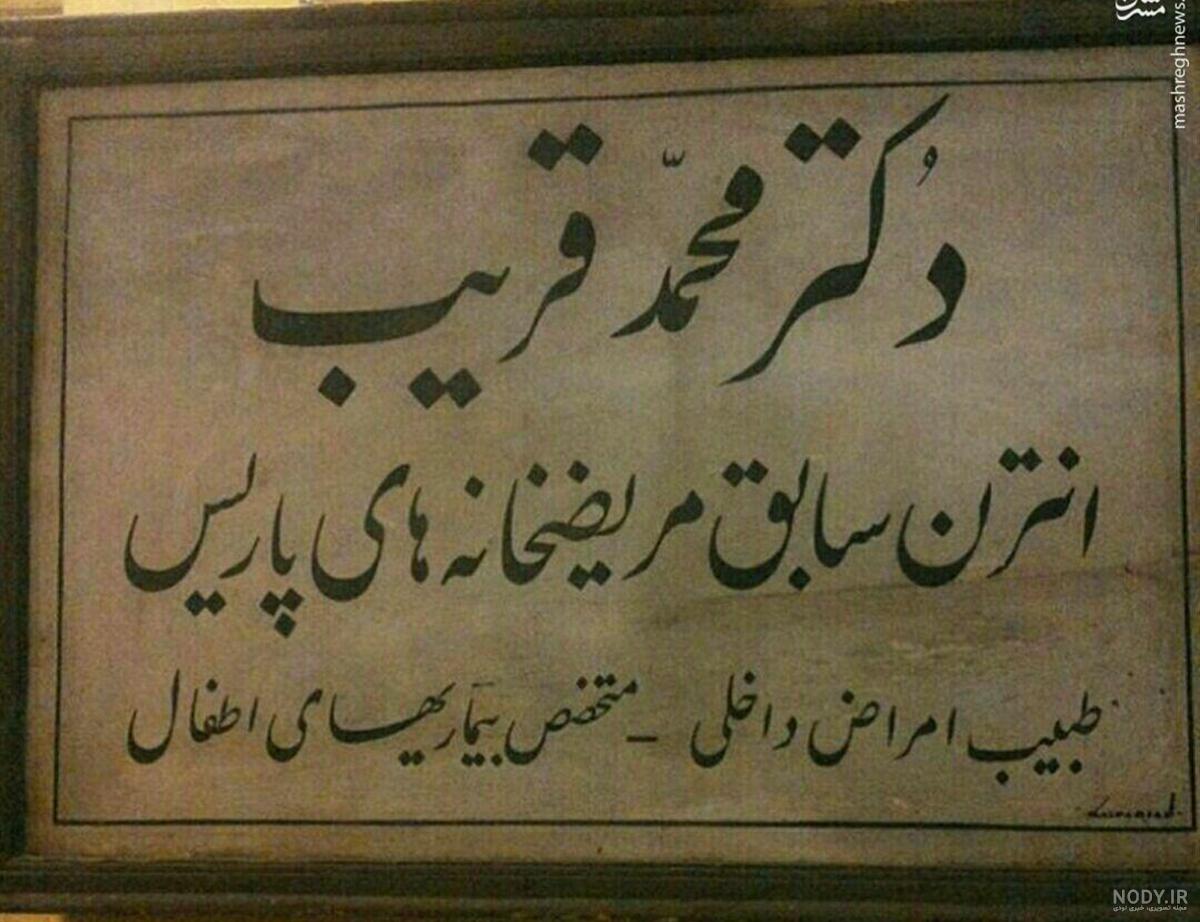 دُکتر محمّد قریب
انترن سابق مریضخانه های پاریس
طبیب امراض داخلی - متخصص بیماریهای اطفال
mashreghnews.
NODY.IR
مجله تصویری، خبری نودی